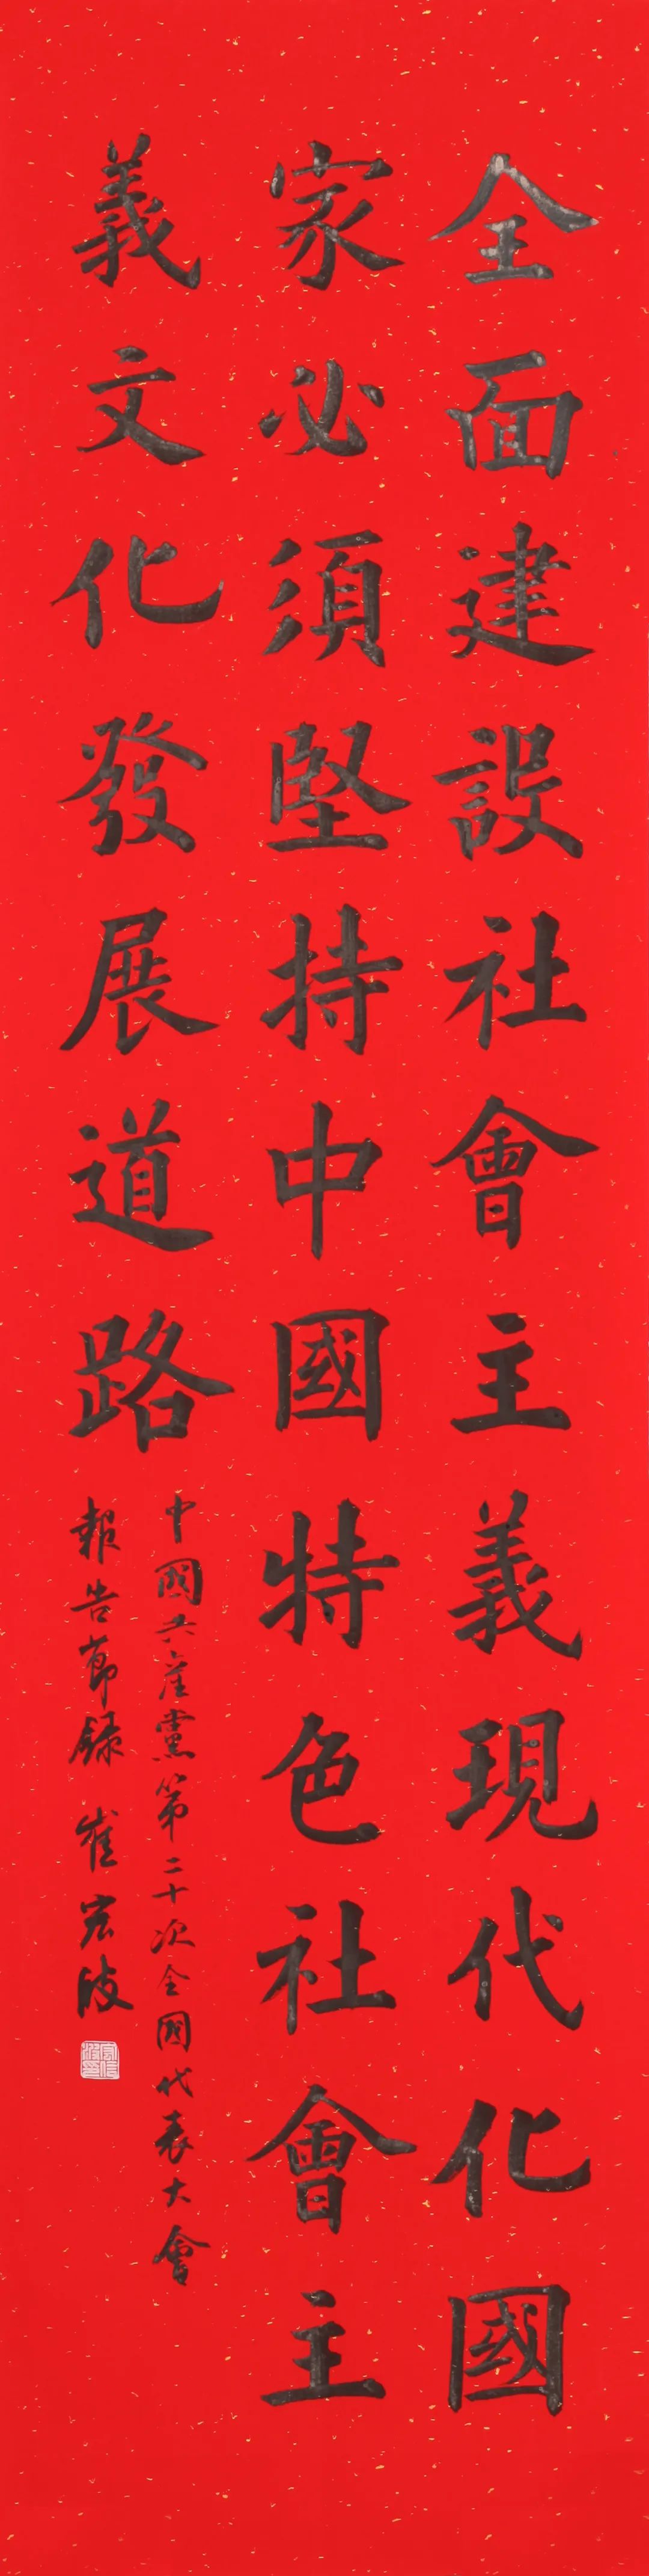 全面建設社會主義現代化國
家必須堅持中國特色社會主
義文化發展道路
中國共產黨第二十次全國代表大會
報告節録 崔宏波